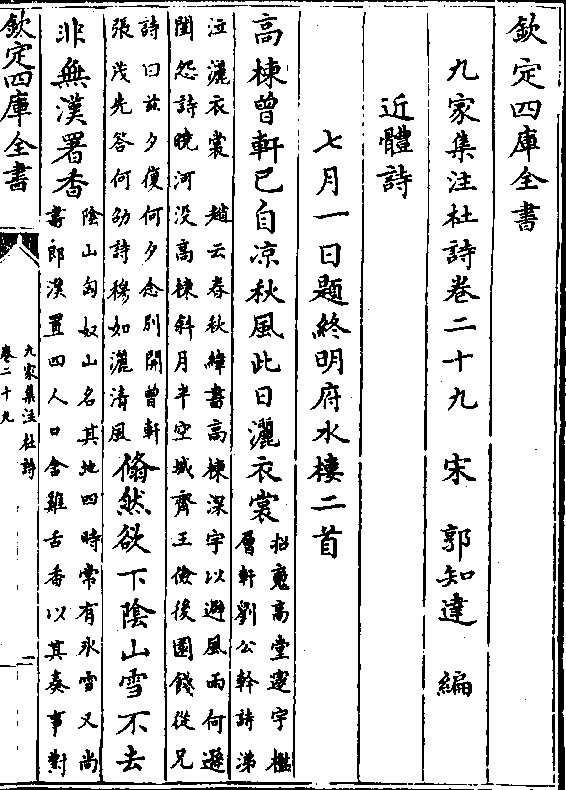 欽定四庫全書
九家集注杜詩卷二十九 宋 郭知達 編
近體詩
七月一日題終明府水樓二首
高棟曾軒已自凉秋風此日灑衣裳
招魂高堂邃宇檻
層軒劉公幹詩涕
泣灑衣裳 趙云春秋緯書高棟深宇以避風雨何遜
閨怨詩曉河没高棟斜月半空城齊王儉後園餞從兄
詩曰兹夕復何夕念别開曾軒
張茂先答何劭詩穆如灑清風
翛然欲下陰山雪不去
非無漢署香
陰山匈奴山名其地四時常有氷雪又尚
書郎漢置四人口含雞舌香以其奏事對
欽定四庫全書
九家集注杜詩
卷二十九
一